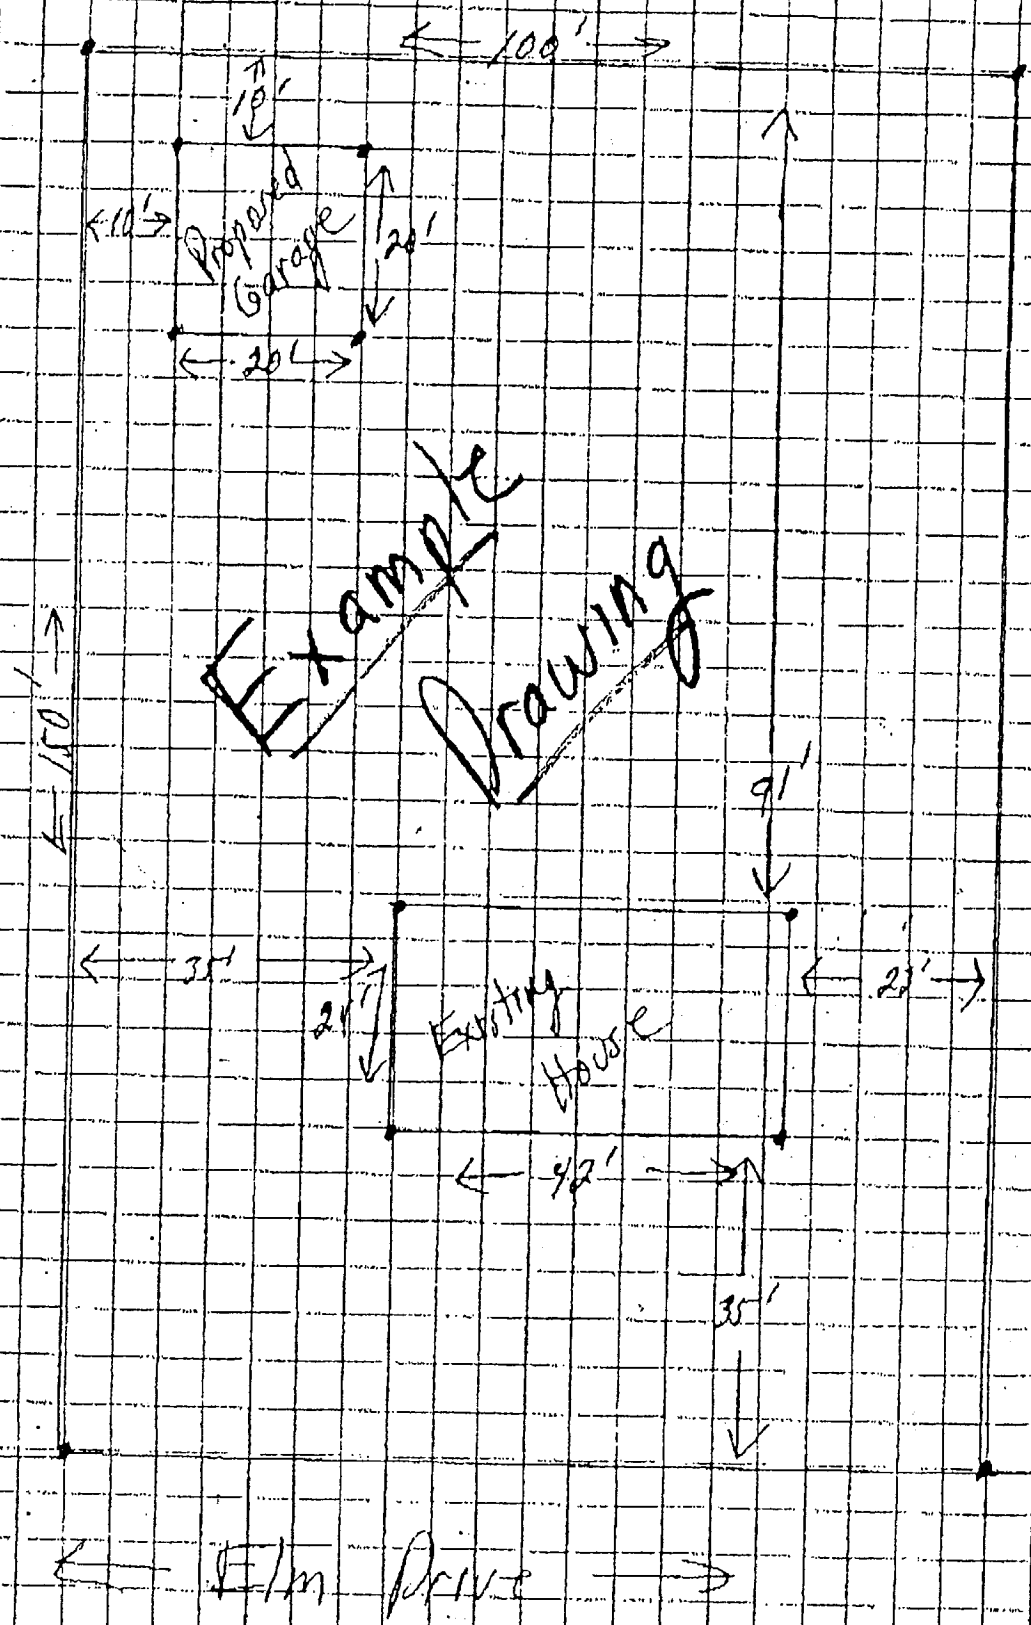 100'
10'
10'
Proposed
Garage
20'
20'
Example
Drawing
150'
91'
35'
24'
Existing
House
23'
42'
35'
Elm Drive